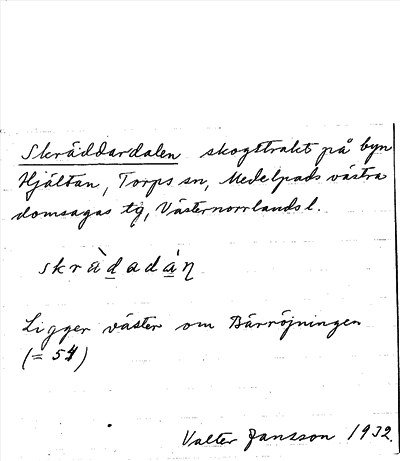 Skräddardalen skogstrakt på byn
Hjältan, Torps sn, Medelpads västra
domsagas tg, Västernorrlands l.
skrä̀dadàn
Ligger väster om Bärröjningen
(= 54)
Valter Jansson 1932.